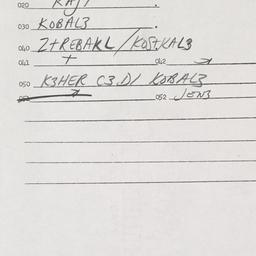 020 KAJI
030 KOBAL3
040 Z+REBAKL/KOS+KAL3
041 + 042
050 K3HER C3.D/ KOBAL3
052 JEN3